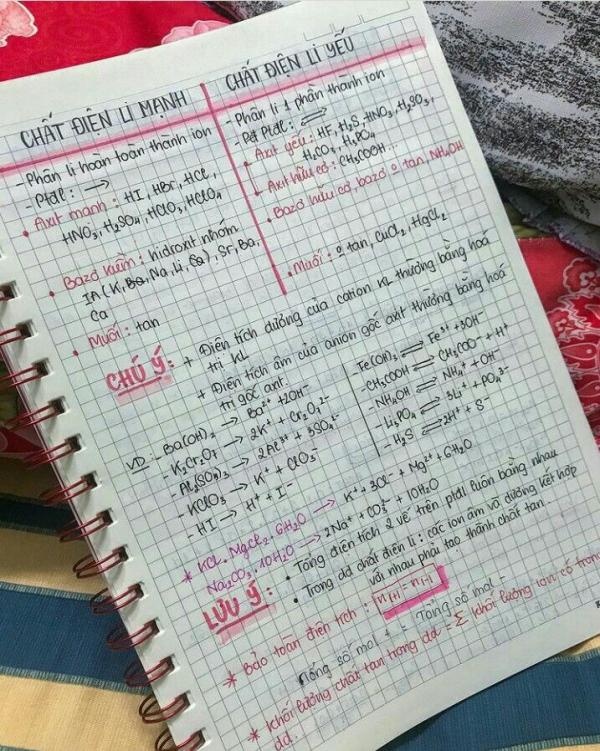 CHẤT ĐIỆN LI MẠNH
- Phân li hoàn toàn thành ion
- Ptđl: →
• Axit mạnh: HI, HBr, HCl,
HNO3, H2SO4, HClO3, HClO4
• Bazơ kiềm: hidroxit nhóm
IA (K, Ba, Na, Li, Cs), Sr, Ba,
Ca
• Muối: tan
CHẤT ĐIỆN LI YẾU
- Phân li 1 phần thành ion
- Pt Ptđl: ⇌
• Axit yếu: HF, H2S, HNO2, H2SO3,
H2CO3, H3PO4
• Axit hữu cơ: CH3COOH...
• Bazơ hữu cơ, bazơ o tan, NH4OH
• Muối: o tan, CuCl2, HgCl2
CHÚ Ý: + Điện tích dương của cation KL thường bằng hoá
trị KL
+ Điện tích âm của anion gốc axit thường bằng hoá
trị gốc axt.
VD: - Ba(OH)2 → Ba2+ + 2OH-
- K2Cr2O7 → 2K+ + Cr2O7 2-
- Al2(SO4)3 → 2Al3+ + 3SO4 2-
- KClO3 → K+ + ClO3-
- HI → H+ + I-
- Fe(OH)3 ⇌ Fe3+ + 3OH-
- CH3COOH ⇌ CH3COO- + H+
- NH4OH ⇌ NH4+ + OH-
- Li3PO4 ⇌ 3Li+ + PO4 3-
- H2S ⇌ 2H+ + S-
* KCl.MgCl2.6H2O → K+ + 3Cl- + Mg2+ + 6H2O
Na2CO3.10H2O → 2Na+ + CO3 2- + 10H2O
LƯU Ý: • Tổng điện tích 2 vế trên ptđl luôn bằng nhau
• Trong dd chất điện li: các ion âm và dương kết hợp
với nhau phải tạo thành chất tan.
* Bảo toàn điện tích: n(+) = n(-)
Tổng số mol + = Tổng số mol -
* Khối lượng chất tan trong dd = Σ khối lượng ion có trong
dd.